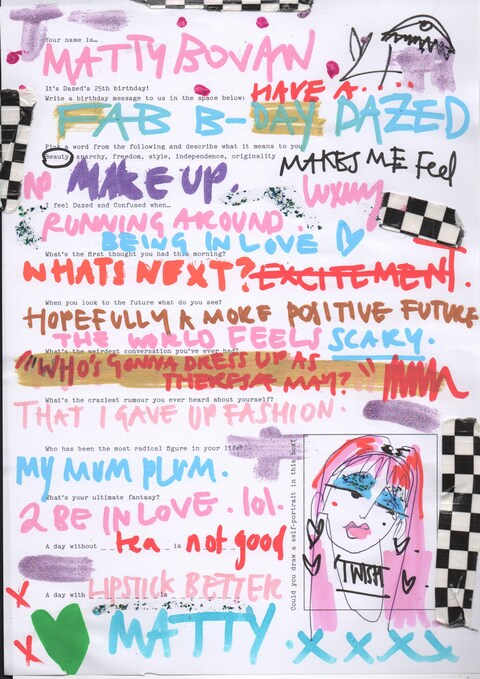 Your name is…
MATTY BOVAN
It's Dazed's 25th birthday!
Write a birthday message to us in the space below:
HAVE A....
FAB B-DAY DAZED
Pick a word from the following and describe what it means to you
Beauty, anarchy, freedom, style, independence, originality
MAKES ME FEEL
NO MAKE UP.
luxury
I feel Dazed and Confused when…
RUNNING AROUND.
BEING IN LOVE
What's the first thought you had this morning?
WHATS NEXT? EXCITEMENT.
When you look to the future what do you see?
HOPEFULLY A MORE POSITIVE FUTURE
THE WORLD FEELS SCARY.
What's the weirdest conversation you've ever had?
"WHO'S GONNA DRESS UP AS
THERESA MAY?"
What's the craziest rumour you ever heard about yourself?
THAT I GAVE UP FASHION.
Who has been the most radical figure in your life?
MY MUM PLUM.
What's your ultimate fantasy?
2 BE IN LOVE. lol.
A day without tea is not good
A day with LIPSTICK is BETTER
Could you draw a self-portrait in this box?
TWISH
MATTY. xxxx
x
x